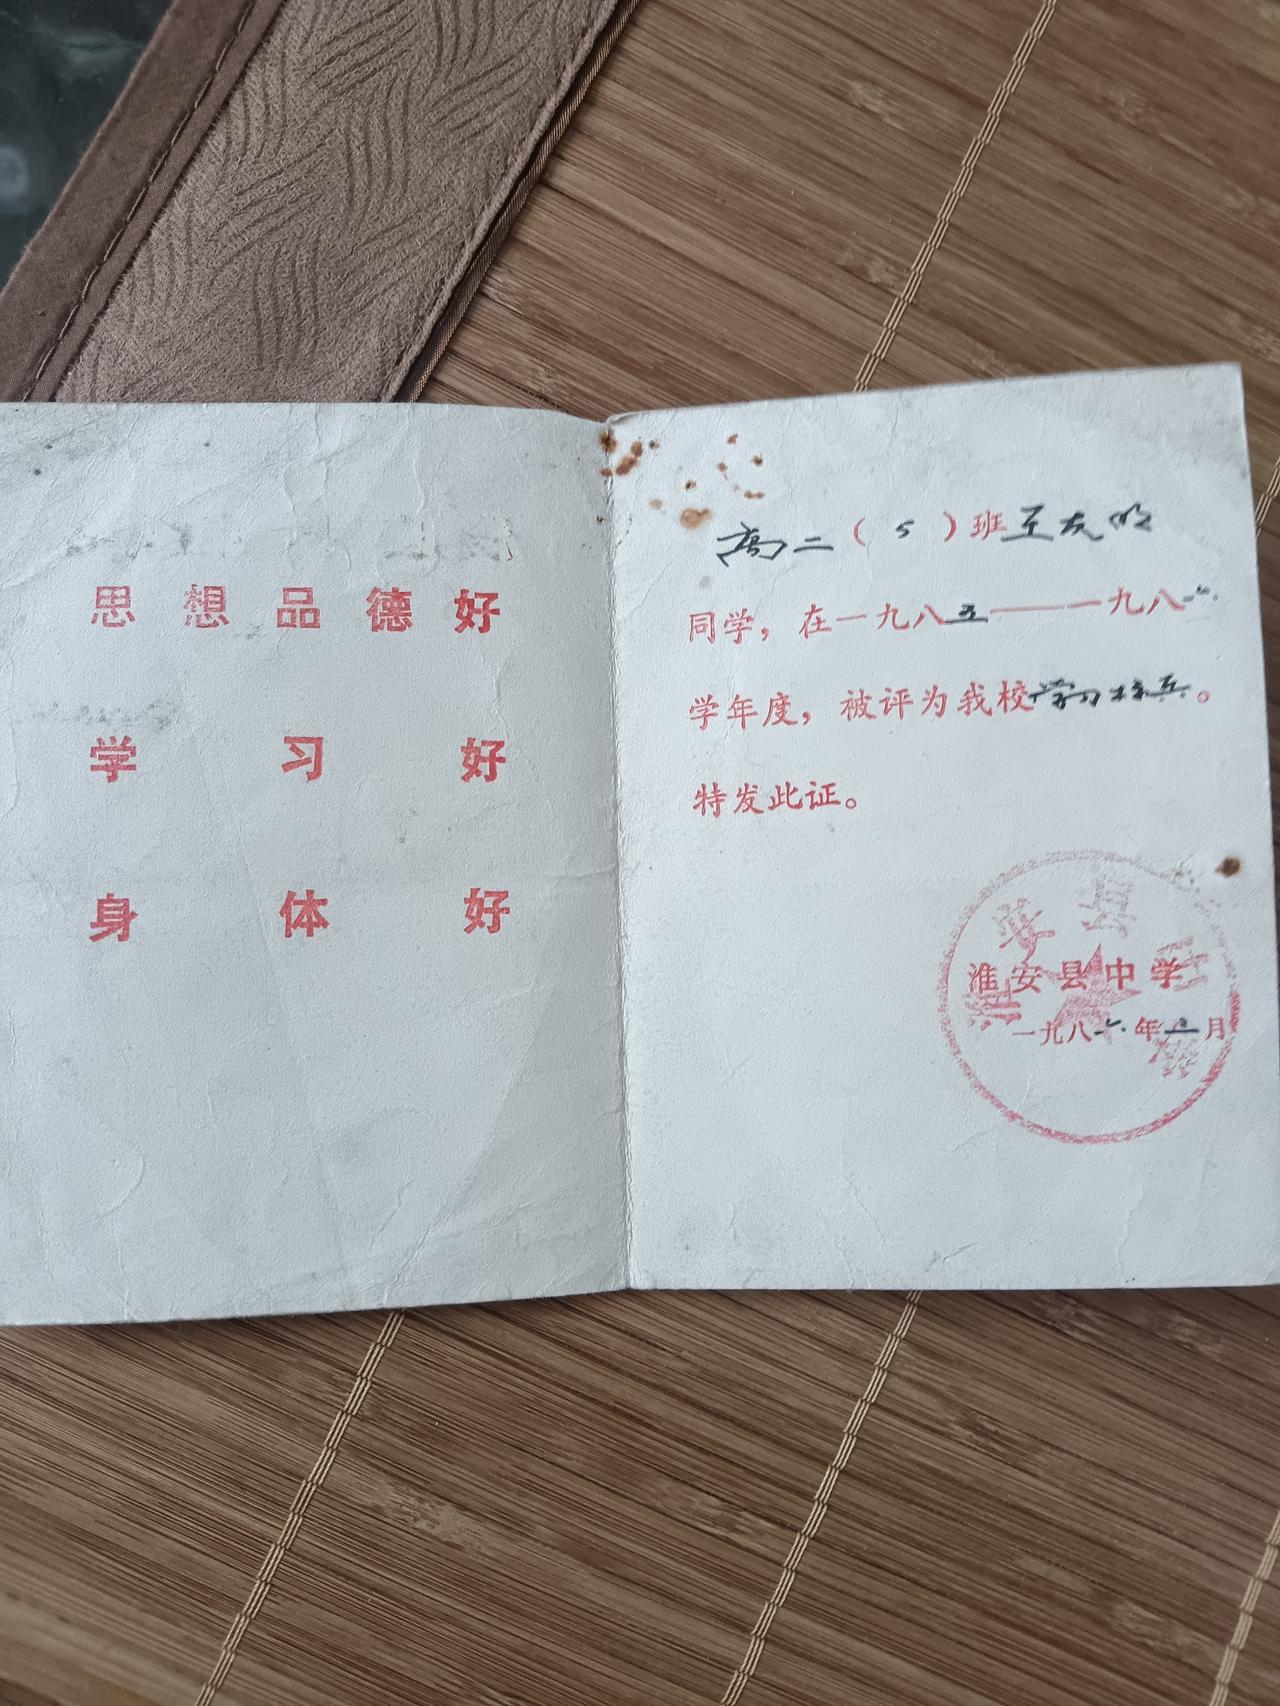 思想品德好
学习好
身体好
高二(5)班王友明
同学，在一九八五——一九八六
学年度，被评为我校学习标兵。
特发此证。
淮安县中学
一九八六年三月
淮安县中学